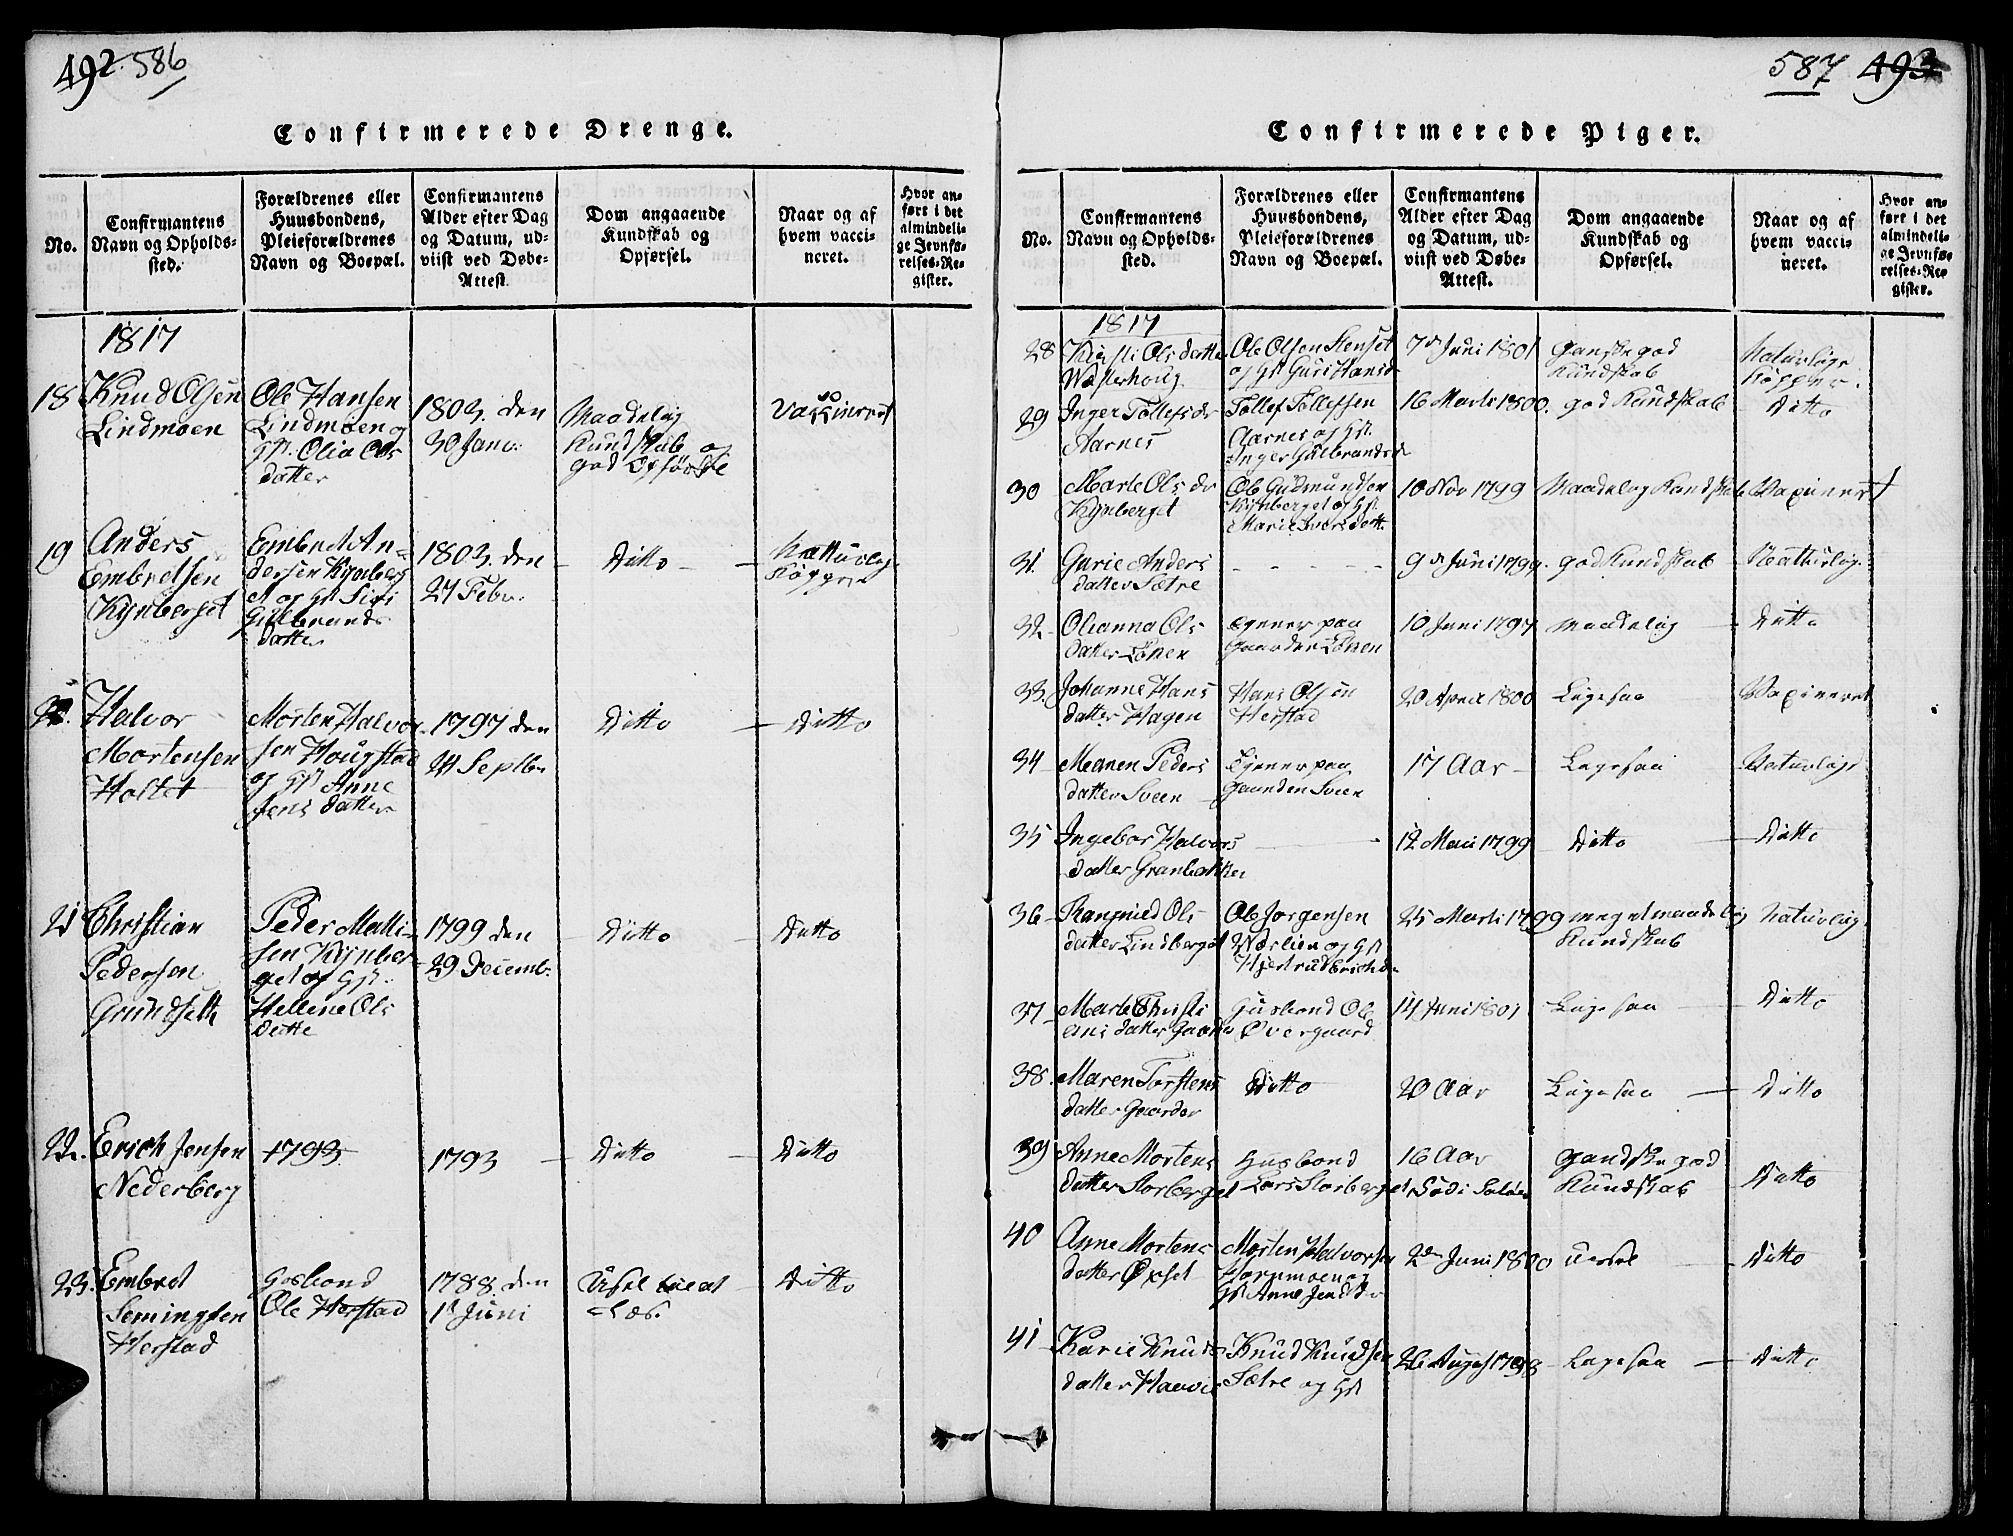 492. 586
Confirmerede Drenge.
No.
Confirmantens
Navn og Opholds-
sted.
Forældrenes eller
Huusbondens,
Pleieforældrenes
Navn og Boepæl.
Confirmantens
Alder efter Dag
og Datum, ud-
viist ved Døbe-
Attest.
Dom angaaende
Kundskab og
Opførsel.
Naar og af
hvem vacci-
neret.
Hvor an-
ført i det
almindeli-
ge Jevnfø-
relses-Re-
gister.
1817
18 Knud Olsen
Lindmoen
Ole Hansen
Lindmoen og
Olia Ols
datter
1803 den
30 Janu:
Maadelig
Kundskab og
god Opførsele
Vaccineret
19 Anders
Embretsen
Kynberget
Embret An-
dersen Kynberg
et og Siri
Gulbrands
datter
1803 den
27 Febr.
Ditto
Kopper
Halvor
Mortensen
Holtet
Morten Halvor
sen Hougstad
og Anne
Jens datter
1797 den
24 Septbr
Ditto
Ditto
21 Christian
Pedersen
Grundseth
Peder Matti-
sen Kynber-
get og
Hellene Ols
datte
1799 den
29 Decemb.
Ditto
Ditto
22. Erich Jensen
Nederberg
1793
1793
Ditto
Ditto
23. Embret
Semingsen
Herstad
Gosbond
Ole Herstad
1788 den
1st Juni
Ditto
587 493
Confirmerede Piger.
No.
Confirmantens
Navn og Opholds-
sted.
Forældrenes eller
Huusbondens,
Pleieforældrenes
Navn og Boepæl.
Confirmantens
Alder efter Dag
og Datum, ud-
viist ved Døbe-
Attest.
Dom angaaende
Kundskab og
Opførsel.
Naar og af
hvem vacci-
neret.
Hvor an-
ført i det
almindeli-
ge Jevnfø-
relses-Re-
gister.
1817
28 Kirsti Ols datte
Westerhoug
Ole Olsen Stenset
og Guri Hansd
7de Juni 1801
Ganske god
Kundskab
Naturlige
Kopper.
29 Inger Tollefsdr
Aarnes
Tollef Tollefsen
Aarnes og
Inger Gulbrandsd
16 Marti 1800.
god Kundskab
Ditto
30 Marte Ols dr
Kynberget
Ole Gudmundsen
Kynberget og
Marie Iversdatt.
10 Nov 1799
Maadelig Kundskab
Vaxineret
31. Gurie Anders
datter Sætre
9de Juni 1799.
god Kundskab
Naturlig
32. Olianna Ols
datter Lønen
tjener paa
gaarden Lønen
10 Juni 1797
maadelig
Ditto
33. Johanne Hans
datter Hagen
Hans Olsen
Herstad
20 April 1800
Ligesaa
Vaxineret
34 Marien Peders
datter Sveen
tjener paa
gaarden Sveen
17 Aar
Ligesaa
Naturlige
35 Ingebor Halvors
datter Granbakken
12 Mai 1799
Ditto
Ditto
36 Rangnild Ols
datter Lindberget
Ole Jorgensen
Nærlien og
25 Marti 1799
meget maadelig
Kundskab
Naturlig
37 Marte Christi
ans datter Gaarder
Gusbond Ole
Overgaard
14 Juni 1801
Ligesaa
Ditto
38. Maren Torstens
datter Gaarder
Ditto
20 Aar
Ligesaa
Ditto
39 Anne Mortens
datter Storberget
Husbond
Lars Storberget
16 Aar
Gandske god
Kundskab
Ditto
40 Anne Mortens
datter Øxset
Morten Halvorsen
Hornmoen og
Anne Jensdr
2den Juni 1800
Ditto
41 Karie Knuds
datter
Knud Knudsen
Sætre og
26 August 1798
Ligesaa
Ditto